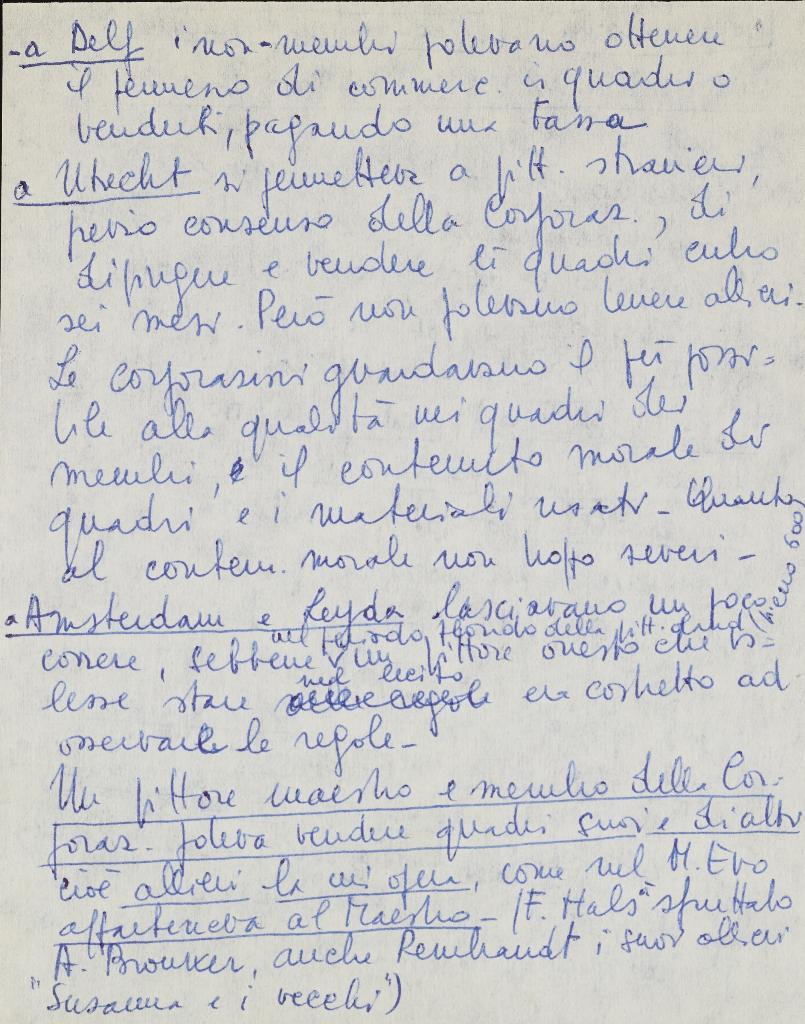 - a Delf i non-membri potevano ottenere
il permesso di commerc. in quadri o
venderli, pagando una tassa
a Utrecht si permetteva a pitt. stranieri,
previo consenso della Corporaz., di
dipingere e vendere i quadri entro
sei mesi. Però non potevano tenere allievi.
Le corporazioni guardavano il più possi-
bile alla qualità dei quadri dei
membri, e il contenuto morale dei
quadri e i materiali usati - Quanto
al conten. morale non troppo severi -
a Amsterdam e Leyda lasciavano un poco
nel periodo florido della pitt. oland. (pieno 600)
correre, sebbene un pittore onesto che vo-
nel lecito
lesse stare era costretto ad
osservare le regole -
Un pittore maestro e membro della Cor-
poraz. poteva vendere quadri suoi e di altri
cioè allievi la cui opera, come nel M. Evo
apparteneva al Maestro - (F. Hals sfruttato
A. Brouwer, anche Rembrandt i suoi allievi
"Susanna e i vecchi")